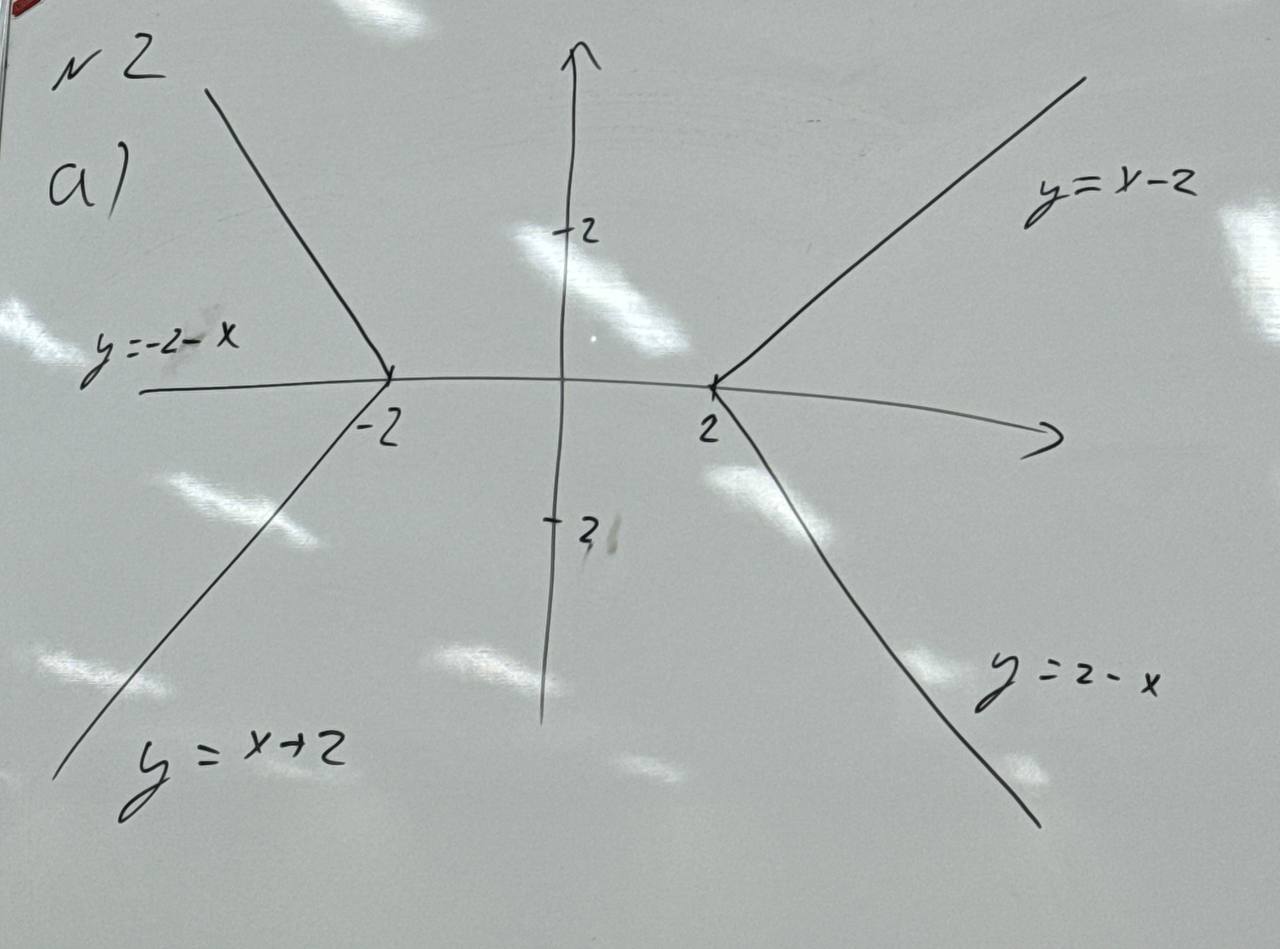 N 2
a)
y = x - 2
2
y = -2 - x
-2
2
2
y = 2 - x
y = x + 2